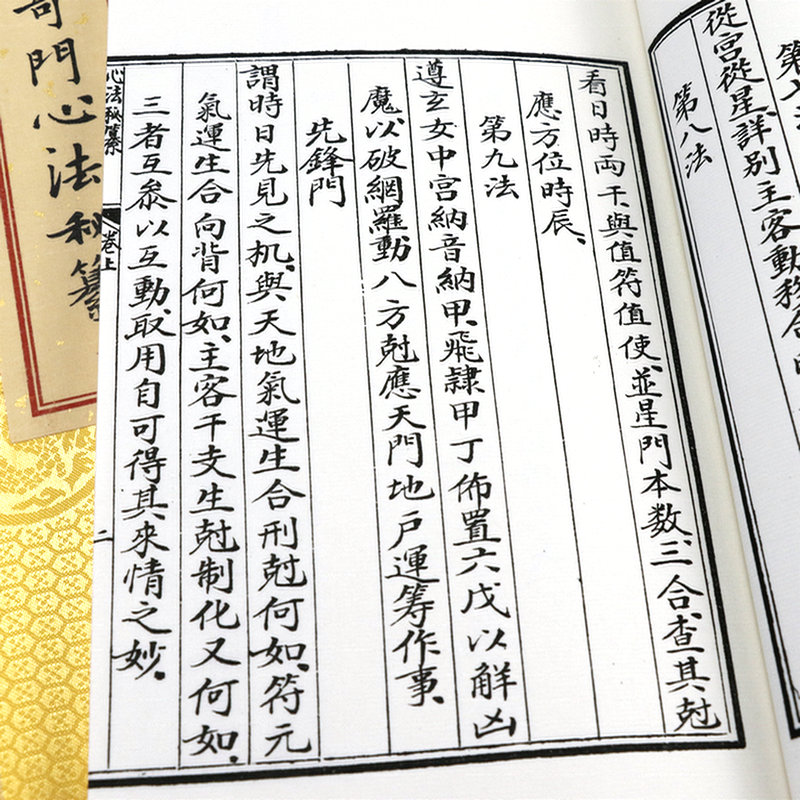 從宮從星、詳別主客動務合
第八法
看日時両干、與值符值使、並星門本数、三合、查其尅
應方位時辰、
第九法
遵玄女中宮納音納甲、飛隷甲丁佈置六戊以解凶
魔、以破網羅、動八方尅應天門地户運筹作事、
先鋒門
謂時日先見之机、與天地氣運生合刑尅何如、符元
氣運生合向背何如、主客干支生尅制化又何如、
三者互參以互動、取用自可得其來情之妙、
心法秘纂
卷上
二
奇門心法秘纂